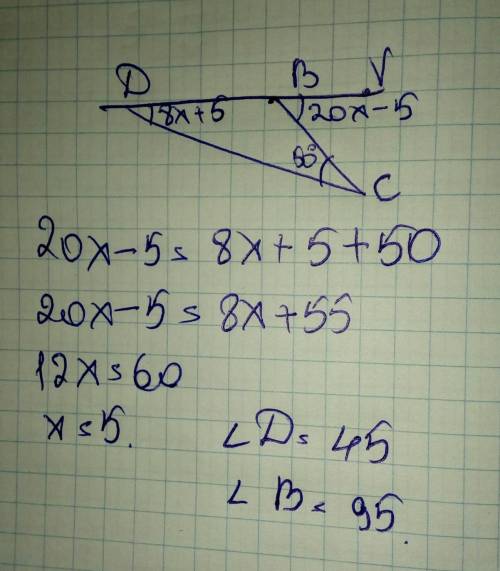 D B V
8x+5 20x-5
50°
C
20x-5= 8x+5+50
20x-5=8x+55
12x=60
x=5. ∠D= 45
∠B= 95.